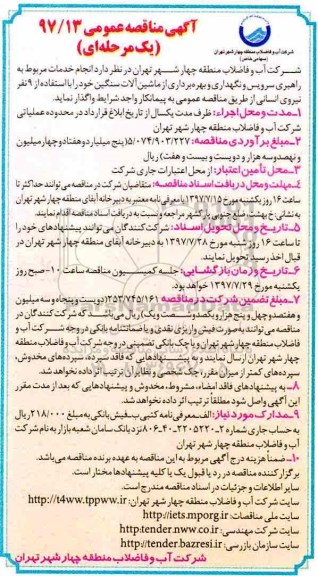 آگهی مناقصه عمومی ۹۷/۱۳
(یک مرحله‌ای)
شرکت آب و فاضلاب منطقه چهار شهر تهران
(سهامی خاص)
شرکت آب و فاضلاب منطقه چهار شهر تهران در نظر دارد انجام خدمات مربوط به
راهبری سرویس و نگهداری و بهره‌برداری از ماشین آلات سنگین خود را با استفاده از ۹ نفر
نیروی انسانی از طریق مناقصه عمومی به پیمانکار واجد شرایط واگذار نماید.
۱- مدت و محل اجراء: ظرف مدت یکسال از تاریخ ابلاغ قرارداد در محدوده عملیاتی
شرکت آب و فاضلاب منطقه چهار شهر تهران
۲- مبلغ برآوردی مناقصه: ۵/۰۷۴/۹۰۳/۲۲۷ (پنج میلیارد و هفتاد و چهار میلیون
و نهصد و سه هزار و دویست و بیست و هفت) ریال
۳- محل تأمین اعتبار: از محل اعتبارات جاری شرکت
۴- مهلت و محل دریافت اسناد مناقصه: متقاضیان شرکت در مناقصه می‌توانند حداکثر تا
ساعت ۱۶ روز یکشنبه مورخ ۱۳۹۷/۷/۱۵ با معرفی نامه معتبر به دبیرخانه آبفای منطقه چهار شهر تهران
به نشانی: خ بهشت، ضلع جنوبی پارکشهر مراجعه و نسبت به دریافت اسناد مناقصه اقدام نمایند.
۵- تاریخ و محل تحویل اسناد: شرکت کنندگان می‌توانند پیشنهادهای خود را
تا ساعت ۱۶ روز شنبه مورخ ۱۳۹۷/۷/۲۸ به دبیرخانه آبفای منطقه چهار شهر تهران در
قبال اخذ رسید تحویل نمایند.
۶- تاریخ و زمان بازگشایی: جلسه کمیسیون مناقصه ساعت ۱۰ صبح روز
یکشنبه مورخ ۱۳۹۷/۷/۲۹ خواهد بود.
۷- مبلغ تضمین شرکت در مناقصه: ۲۵۳/۷۴۵/۱۶۱ (دویست و پنجاه و سه میلیون
و هفتصد و چهل و پنج هزار و یکصد و شصت و یک) ریال می‌باشد که شرکت کنندگان در
مناقصه می‌توانند به صورت فیش واریزی نقدی و یا ضمانتنامه بانکی در وجه شرکت آب و
فاضلاب منطقه چهار شهر تهران و یا چک بانکی تضمینی در وجه شرکت آب و فاضلاب منطقه
چهار شهر تهران ارسال نمایند و به پیشنهادهایی که فاقد سپرده، سپرده‌های مخدوش،
سپرده‌های کمتر از میزان مقرر، چک شخصی و نظایر آن ترتیب اثر داده نخواهد شد.
۸- به پیشنهادهای فاقد امضاء، مشروط، مخدوش و پیشنهادهایی که بعد از مدت مقرر
این آگهی واصل شود مطلقا ترتیب اثر داده نخواهد شد.
۹- مدارک مورد نیاز: الف- معرفی نامه کتبی ب- فیش بانکی به مبلغ ۲۱۸/۰۰۰ ریال
به حساب جاری شماره ۲-۲۲۰۵۲۲۰-۴۰-۸۰۶ نزد بانک سامان شعبه بازار به نام شرکت
آب و فاضلاب منطقه چهار شهر تهران
۱۰- ضمناً هزینه درج آگهی مربوط به این مناقصه به عهده برنده مناقصه می‌باشد.
برگزار کننده مناقصه در رد یا قبول یک یا کلیه پیشنهادها مختار است.
سایر اطلاعات و جزئیات در اسناد مناقصه مندرج است.
سایت شرکت آب و فاضلاب منطقه چهار شهر تهران: http://t4ww.tppww.ir
سایت ملی مناقصات: http://iets.mporg.ir
سایت شرکت مهندسی: http:tender.nww.co.ir
سایت سازمان بازرسی: http://tender.bazresi.ir
شرکت آب و فاضلاب منطقه چهار شهر تهران